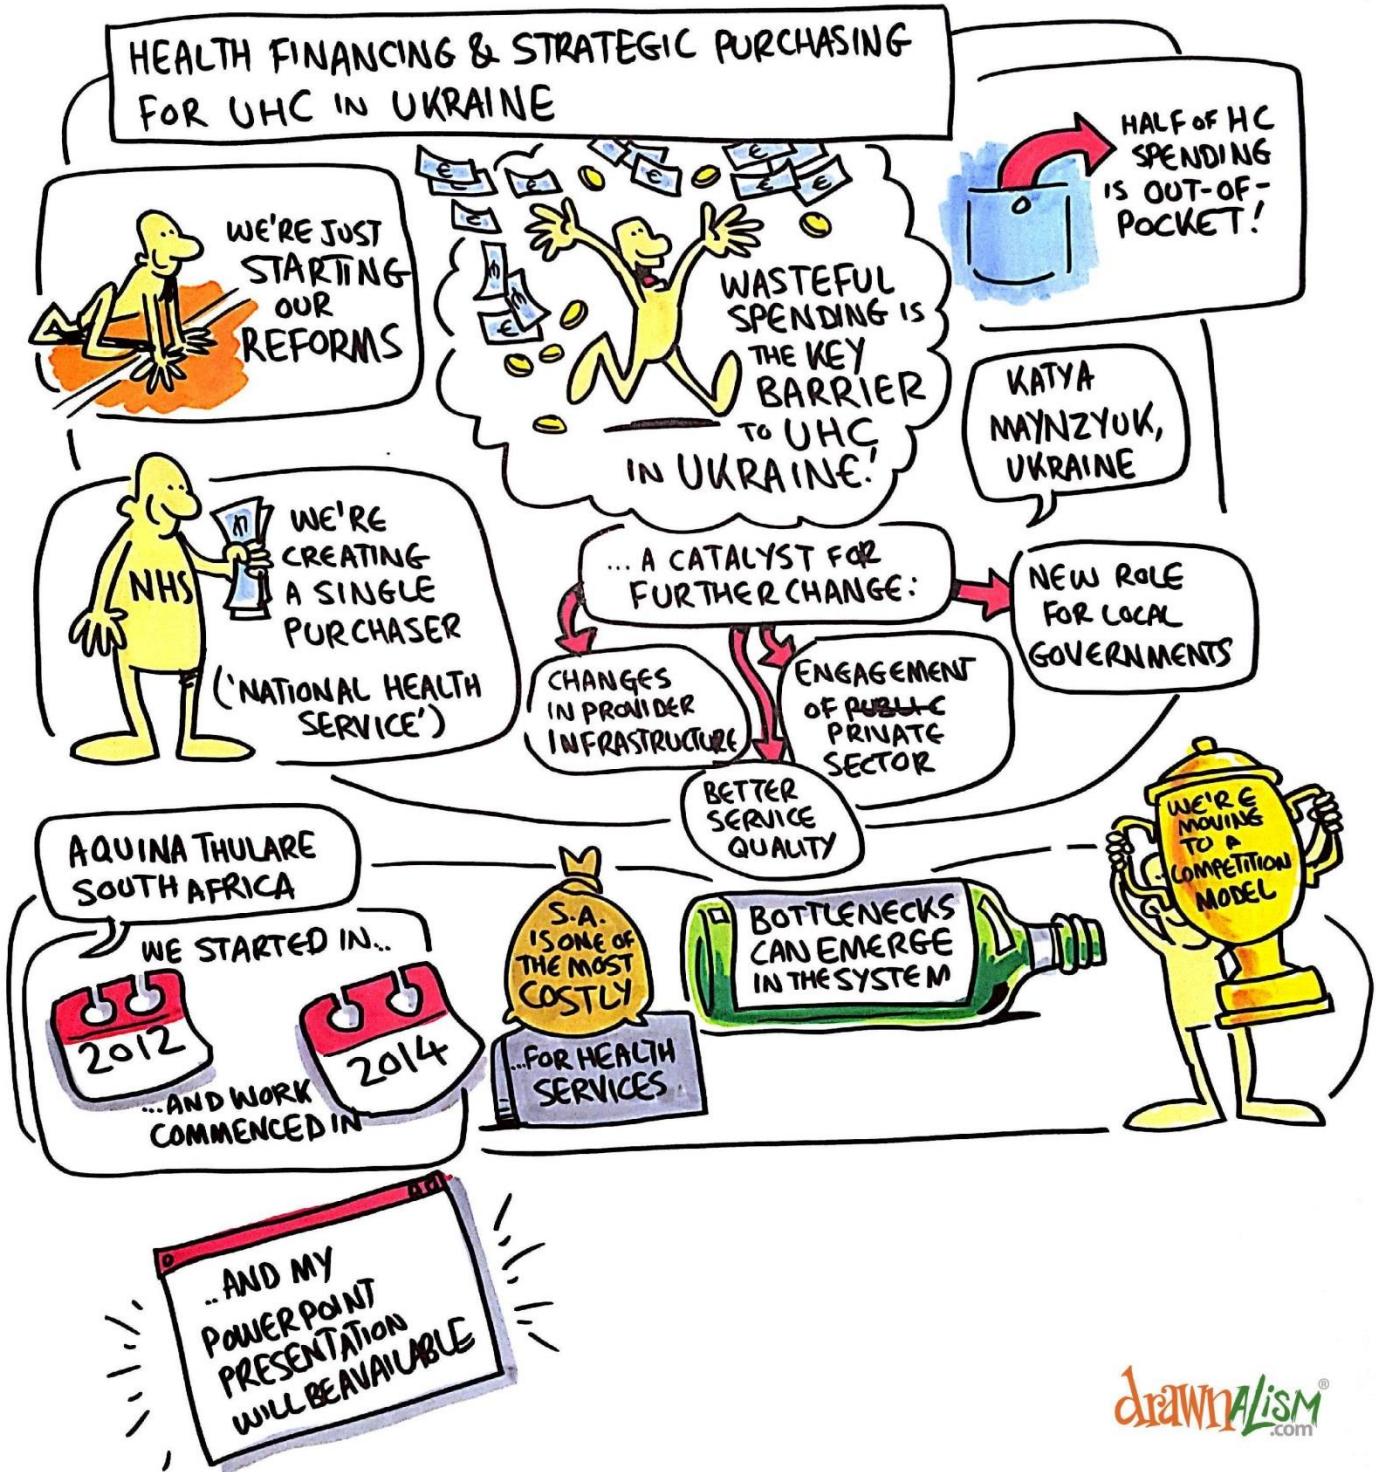 HEALTH FINANCING & STRATEGIC PURCHASING
FOR UHC IN UKRAINE
WE'RE JUST
STARTING
OUR
REFORMS
WASTEFUL
SPENDING IS
THE KEY
BARRIER
TO UHC
IN UKRAINE!
HALF OF HC
SPENDING
IS OUT-OF-
POCKET!
KATYA
MAYNZYUK,
UKRAINE
NHS
WE'RE
CREATING
A SINGLE
PURCHASER
('NATIONAL HEALTH
SERVICE')
... A CATALYST FOR
FURTHER CHANGE:
CHANGES
IN PROVIDER
INFRASTRUCTURE
BETTER
SERVICE
QUALITY
ENGAGEMENT
OF PUBLIC
PRIVATE
SECTOR
NEW ROLE
FOR LOCAL
GOVERNMENTS
AQUINA THULARE
SOUTH AFRICA
WE STARTED IN...
2012
...AND WORK
COMMENCED IN
2014
S.A.
IS ONE OF
THE MOST
COSTLY
...FOR HEALTH
SERVICES
BOTTLENECKS
CAN EMERGE
IN THE SYSTEM
WE'RE
MOVING
TO A
COMPETITION
MODEL
..AND MY
POWERPOINT
PRESENTATION
WILL BE AVAILABLE
drawnalism®
.com